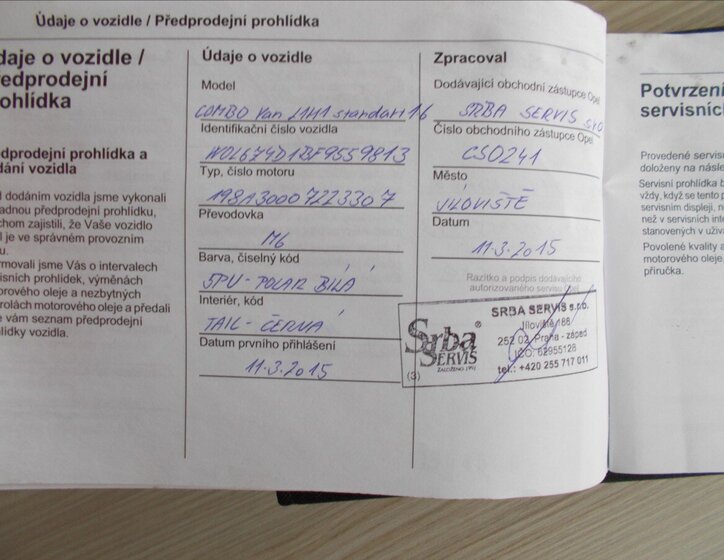 Údaje o vozidle / Předprodejní prohlídka
daje o vozidle /
ředprodejní
ohlídka
dprodejní prohlídka a
dání vozidla
d dodáním vozidla jsme vykonali
adnou předprodejní prohlídku,
chom zajistili, že Vaše vozidlo
l je ve správném provozním
u.
rmovali jsme Vás o intervalech
isních prohlídek, výměnách
orového oleje a nezbytných
rolách motorového oleje a předali
e vám seznam předprodejní
lídky vozidla.
Údaje o vozidle
Model
COMBO Van L1H1 standart 16
Identifikační číslo vozidla
W0L674D1RF9559813
Typ, číslo motoru
198A3000 7223307
Převodovka
M6
Barva, číselný kód
5PU - POLAR BÍLÁ
Interiér, kód
TAIL - ČERNÁ
Datum prvního přihlášení
11.3.2015
Zpracoval
Dodávající obchodní zástupce Opel
SRBA SERVIS s.r.o
Číslo obchodního zástupce Opel
CS0241
Město
JÍLOVIŠTĚ
Datum
11.3.2015
Razítko a podpis dodávajícího
autorizovaného servisu Opel
Srba®
SERVIS
ZALOŽENO 1991
(3)
SRBA SERVIS s.r.o.
Jíloviště 188
252 02 Praha - západ
IČO: 62955128
tel.: +420 255 717 011
Potvrzení
servisníc
Provedené servisn
doloženy na násle
Servisní prohlídka b
vždy, když se tento p
servisním displeji, n
než v servisních inte
stanovených v uživa
Povolené kvality a
motorového oleje.
příručka.